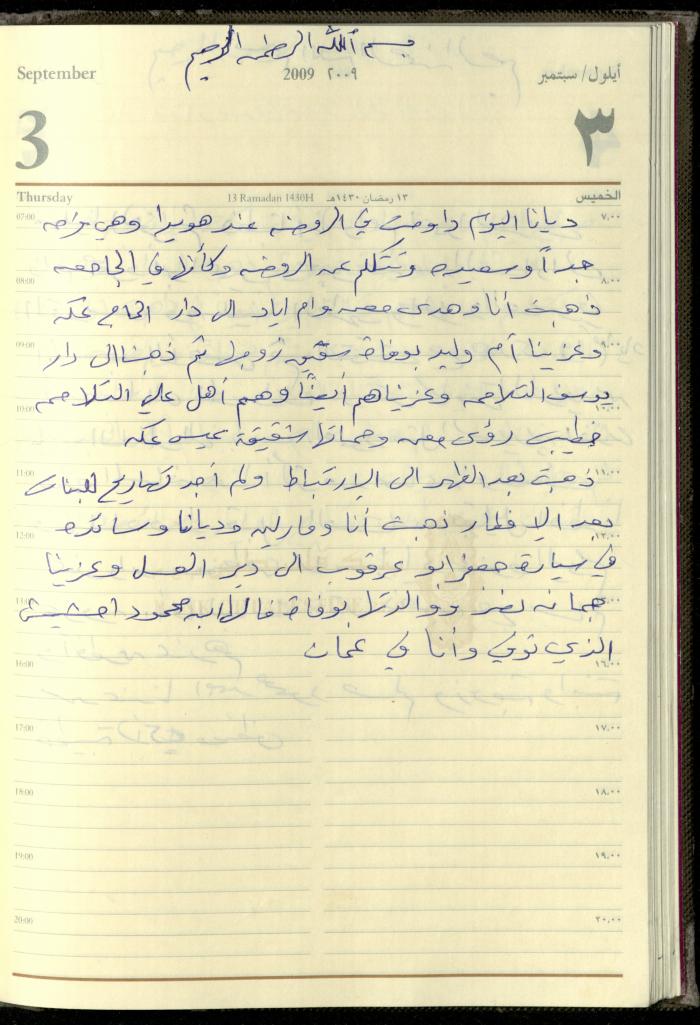 بسم الله الرحمن الرحيم
September
2009 ٢٠٠٩
أيلول/ سبتمبر
3
٣
Thursday
13 Ramadan 1430H ١٣ رمضان ١٤٣٠هـ
الخميس
07:00 ديانا اليوم داومت في الروضه عند هويدا وهي فرحه ٧,٠٠
جداً وسعيده وتتكلم عن الروضه وكأنها في الجامعه
08:00 ٨,٠٠
ذهبت أنا وهدى معمر وام اياد الى دار الحاج عكه
09:00 وعزينا أم وليد بوفاة شقيق زوجها ثم ذهبنا الى دار ٩,٠٠
يوسف التلاحمه وعزيناهم أيضاً وهم أهل علي التلاحمه
10:00 ١٠,٠٠
خطيب رؤى معمر وحماتها شقيقة عيسى عكه
11:00 ذهبت بعد الظهر الى الإرتباط ولم أجد تصاريح للبنات ١١,٠٠
بعد الإفطار ذهبت أنا ومارلين وديانا وسائده
12:00 ١٢,٠٠
في سيارة جعفر ابو عرقوب الى دير العسل وعزينا
13:00 جمانه نصر ووالدتها بوفاة خالها ابو محمود احشيش
الذي توفي وأنا في عمان
16:00 ١٦,٠٠
17:00 ١٧,٠٠
18:00 ١٨,٠٠
19:00 ١٩,٠٠
20:00 ٢٠,٠٠